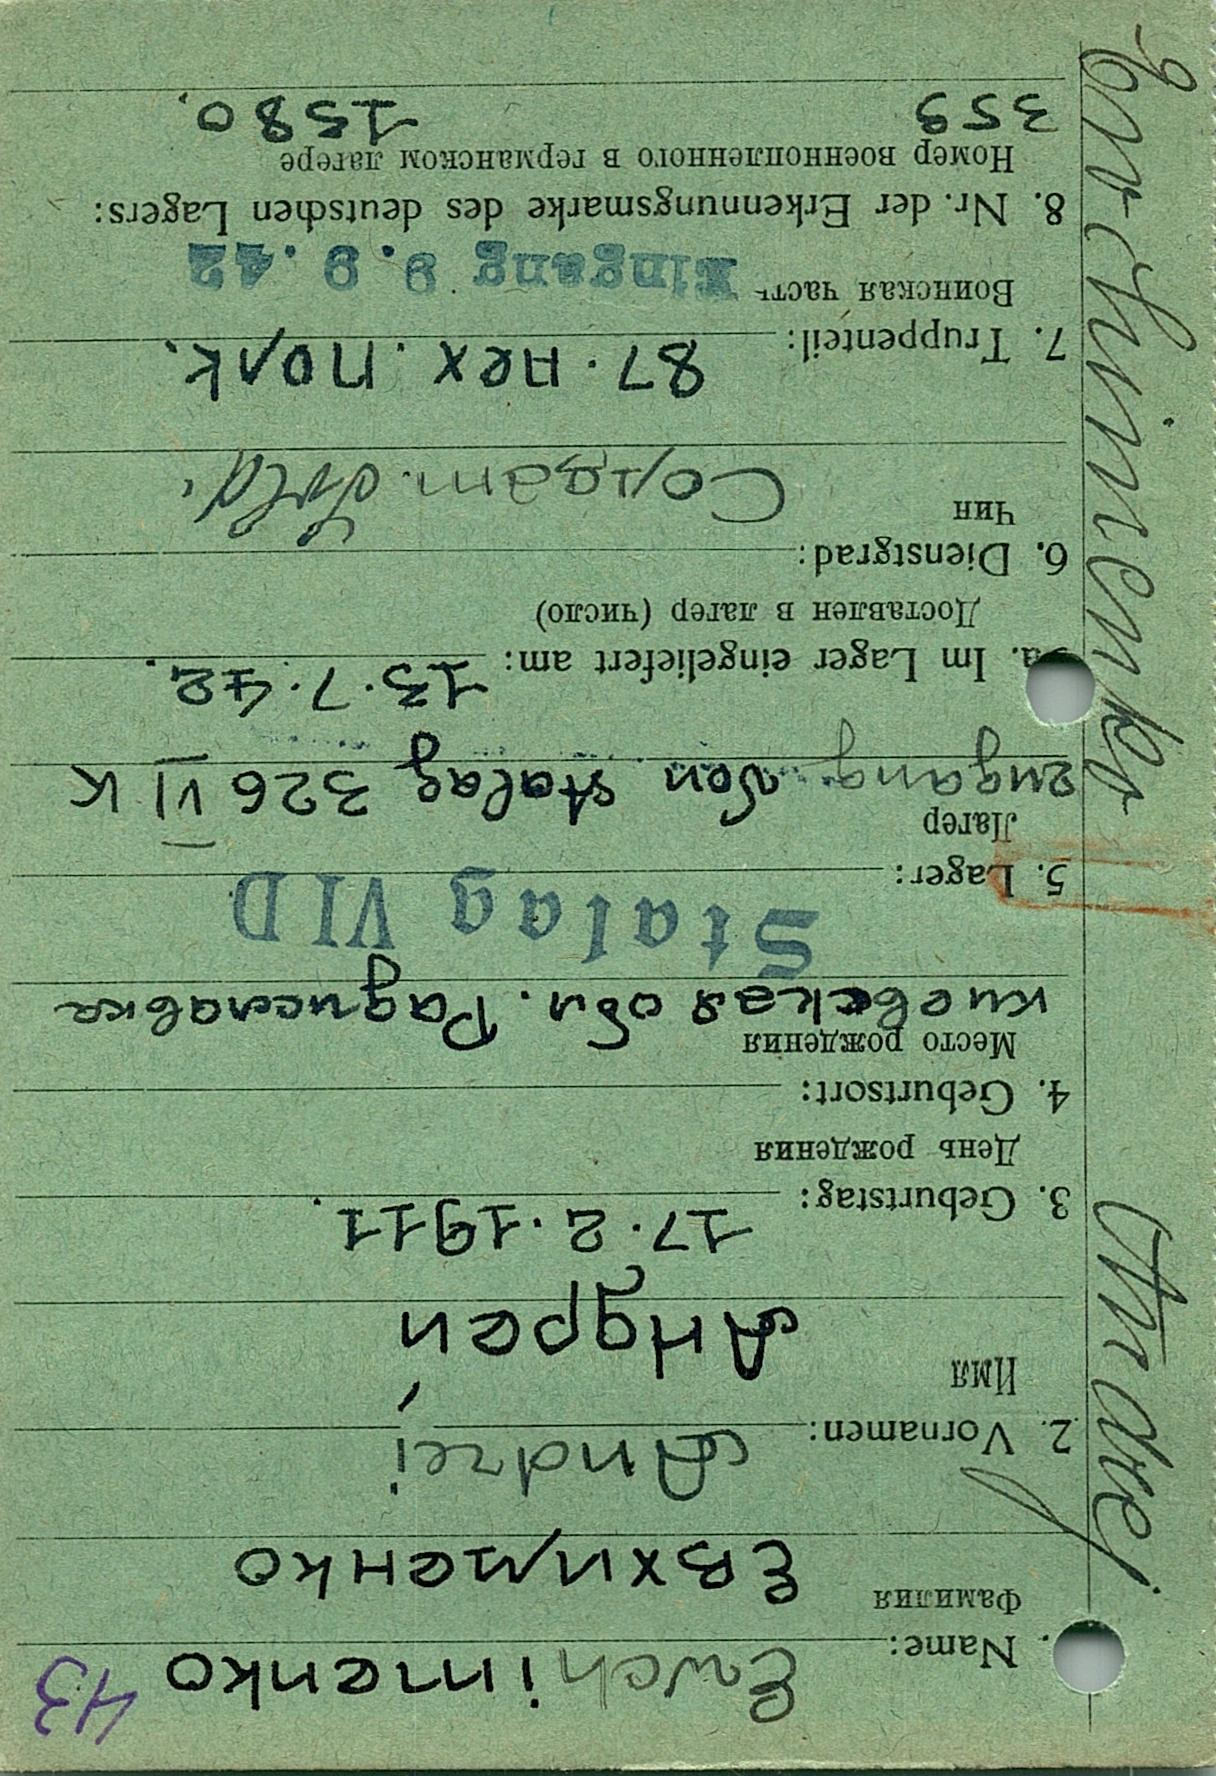 43
Ewchimenko
. Name:
Фамилия
Евхименко
Andrei
2. Vornamen:
Имя
Андрей
17.2.1911.
3. Geburtstag:
День рождения
4. Geburtsort:
Место рождения
киевская обл. Радиславка
Stalag VI D
5. Lager:
Лагер
zugang von Stalag 326 VI K
13.7.42.
a. Im Lager eingeliefert am:
Доставлен в лагер (число)
6. Dienstgrad:
Чин
Солдат. Sold.
87. пех. полк.
7. Truppenteil:
Воинская часть
Eingang 9.9.42
8. Nr. der Erkennungsmarke des deutschen Lagers:
Номер военнопленного в германском лагере
359 1580.
Andrej